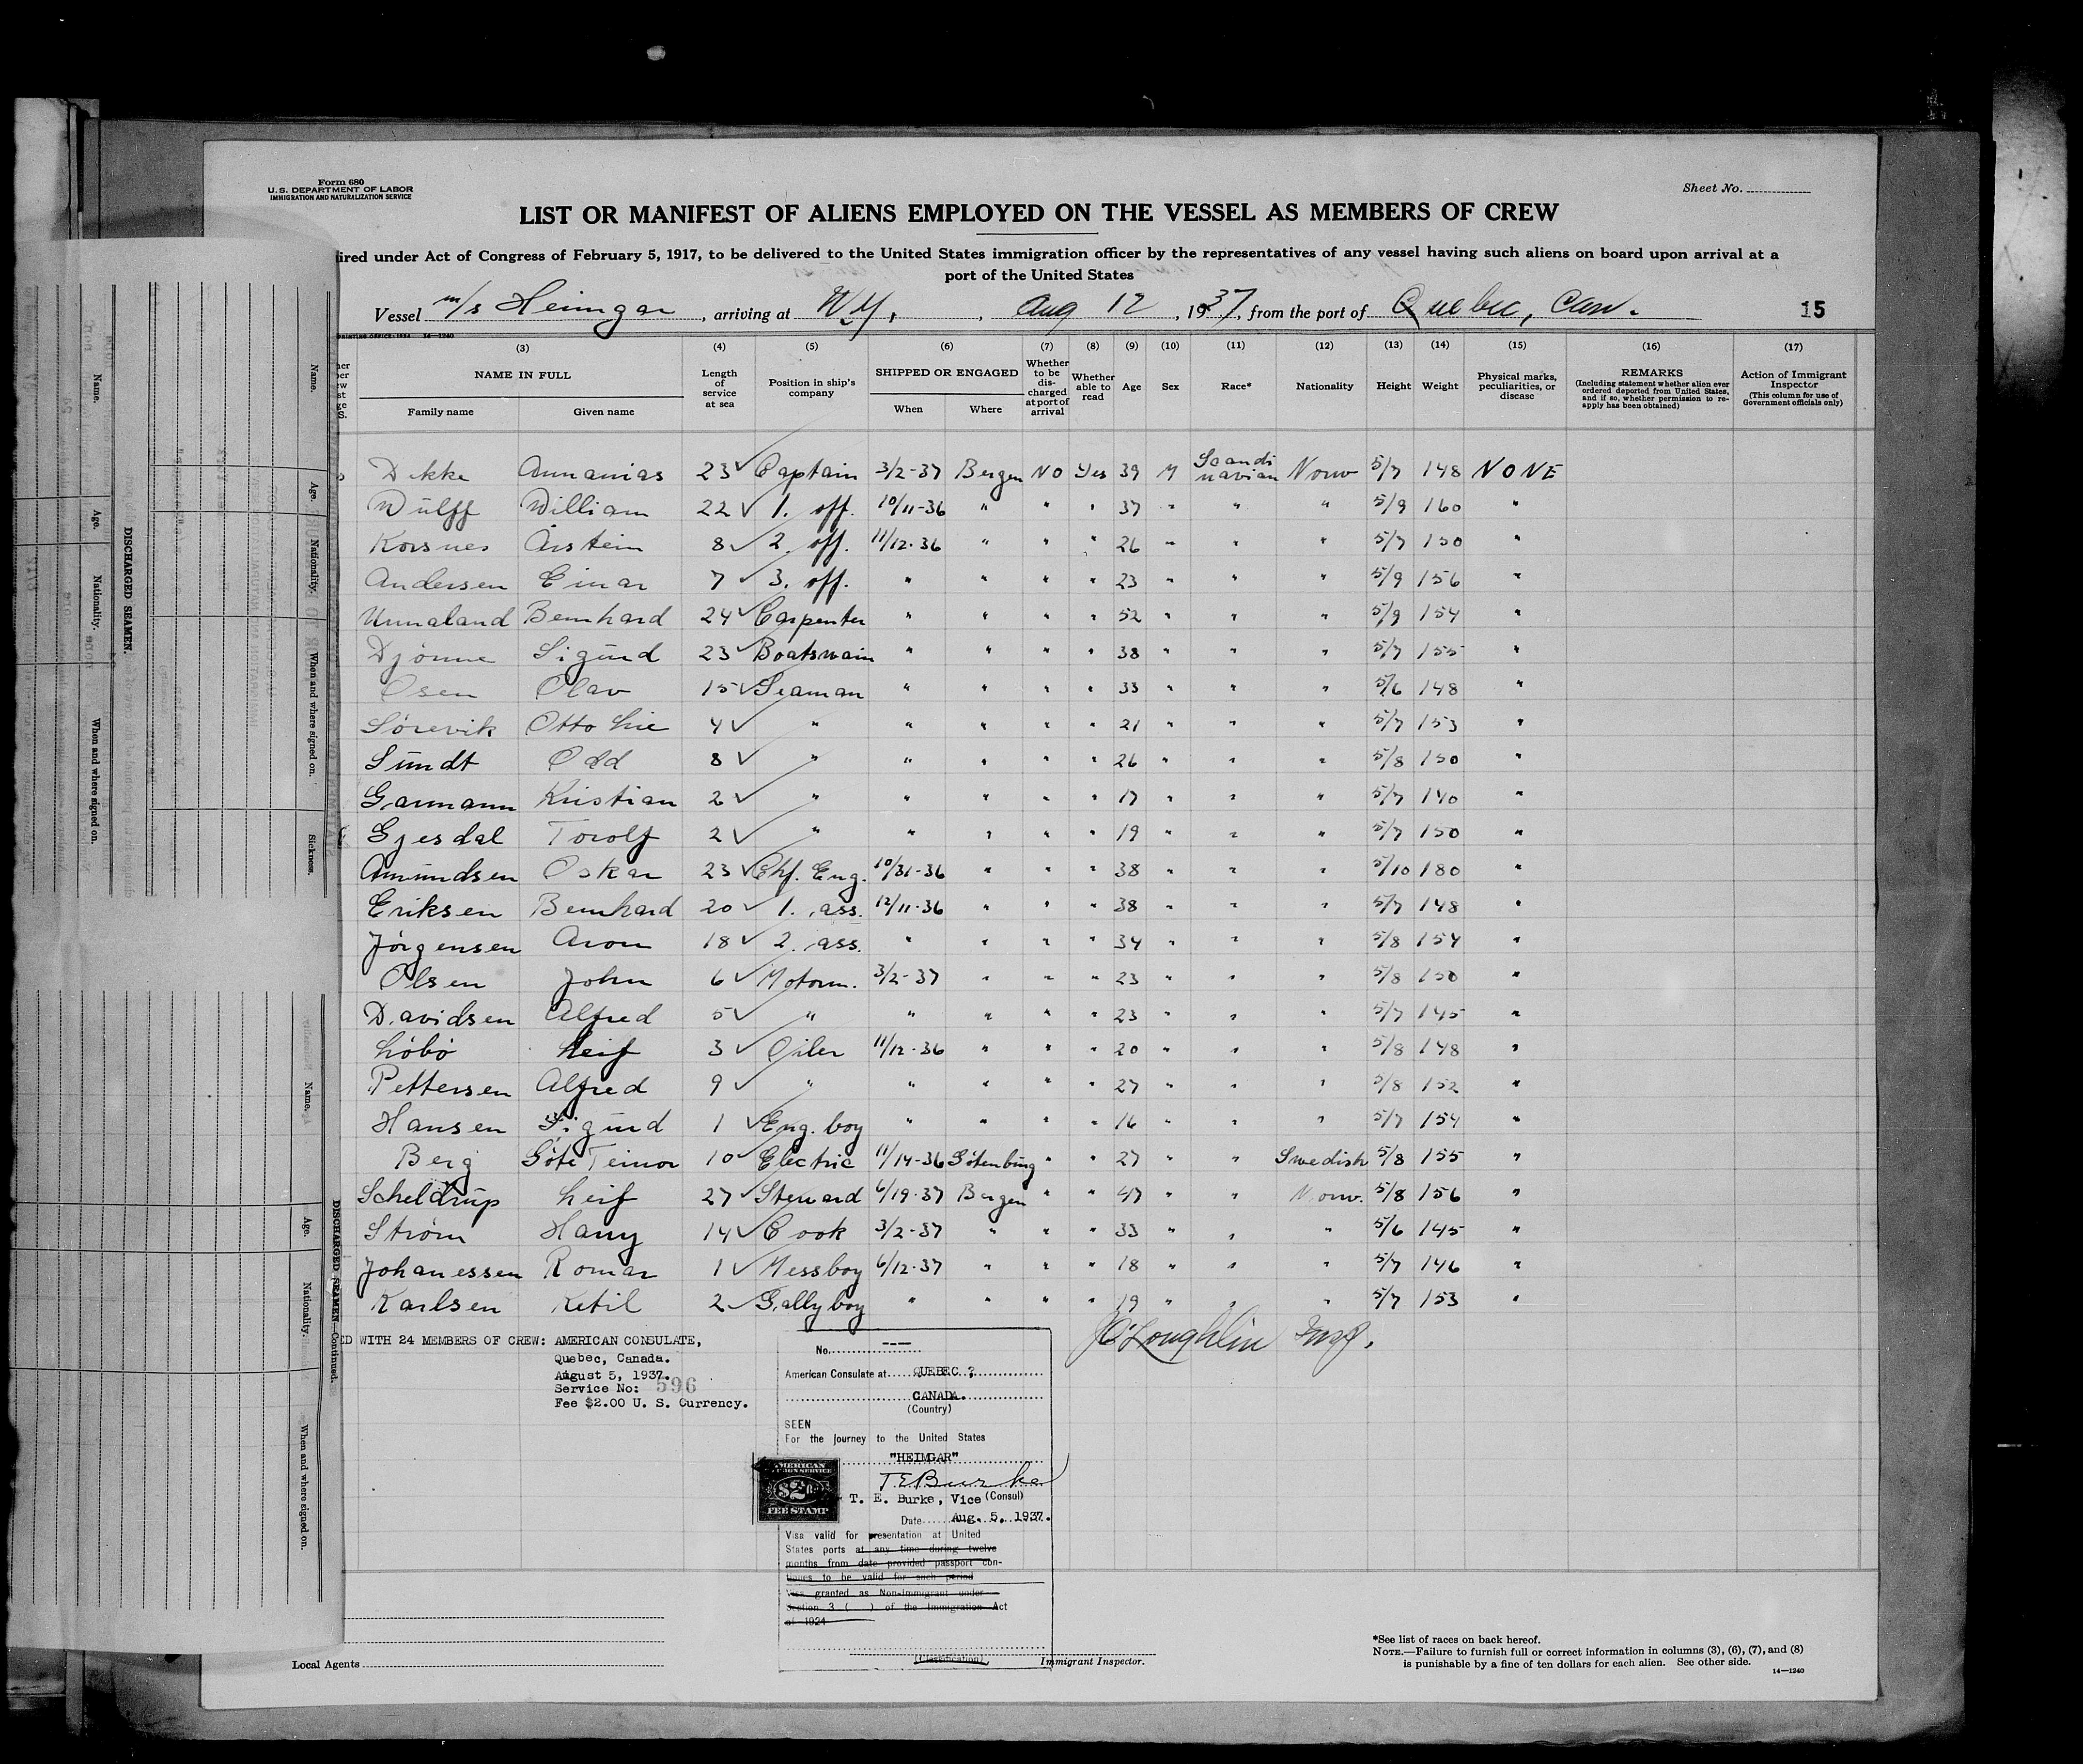 Form 680
U. S. DEPARTMENT OF LABOR
IMMIGRATION AND NATURALIZATION SERVICE
Sheet No.
LIST OR MANIFEST OF ALIENS EMPLOYED ON THE VESSEL AS MEMBERS OF CREW
ired under Act of Congress of February 5, 1917, to be delivered to the United States immigration officer by the representatives of any vessel having such aliens on board upon arrival at a
port of the United States
Vessel m/s Heimgar, arriving at N.Y., Aug 12, 1937, from the port of Quebec, Can. 15
(3) (4) (5) (6) (7) (8) (9) (10) (11) (12) (13) (14) (15) (16) (17)
NAME IN FULL
Family name Given name
Length of service at sea
Position in ship's company
SHIPPED OR ENGAGED
When Where
Whether to be discharged at port of arrival
Whether able to read
Age
Sex
Race*
Nationality
Height
Weight
Physical marks, peculiarities, or disease
REMARKS
(Including statement whether alien ever ordered deported from United States, and if so, whether permission to reapply has been obtained)
Action of Immigrant Inspector
(This column for use of Government officials only)
Dekke Annanias 23 ✓ Captain 3/2-37 Bergen NO Yes 39 M Scandinavian Norw 5/7 148 NONE
Wülff William 22 ✓ 1. off. 10/11-36 " " " 37 " " " 5/9 160 "
Korsnes Arstein 8 ✓ 2. off. 11/12-36 " " " 26 " " " 5/7 150 "
Andersen Einar 7 ✓ 3. off. " " " " 23 " " " 5/9 156 "
Unnaland Bernhard 24 ✓ Carpenter " " " " 52 " " " 5/9 154 "
Djönne Sigürd 23 ✓ Boatswain " " " " 38 " " " 5/7 155 "
Osen Olav 15 ✓ Seaman " " " " 33 " " " 5/6 148 "
Sörevik Otto Lie 4 ✓ " " " " " 21 " " " 5/7 153 "
Sündt Odd 8 ✓ " " " " " 26 " " " 5/8 150 "
Garmann Kristian 2 ✓ " " " " " 17 " " " 5/7 140 "
Gjesdal Torolf 2 ✓ " " " " " 19 " " " 5/7 150 "
Amündsen Oskar 23 ✓ Chf. Eng. 10/31-36 " " " 38 " " " 5/10 180 "
Eriksen Bernhard 20 ✓ 1. ass. 12/11-36 " " " 38 " " " 5/7 148 "
Jörgensen Aron 18 ✓ 2. ass. " " " " 34 " " " 5/8 154 "
Olsen John 6 ✓ Motorm. 3/2-37 " " " 23 " " " 5/8 150 "
Davidsen Alfred 5 ✓ " " " " " 23 " " " 5/7 145 "
Löbö Leif 3 ✓ Oiler 11/12-36 " " " 20 " " " 5/8 148 "
Pettersen Alfred 9 ✓ " " " " " 27 " " " 5/8 152 "
Hansen Sigürd 1 ✓ Eng. boy " " " " 16 " " " 5/7 154 "
Berg Göte Teinor 10 ✓ Electric 11/14-36 Götenburg " " 27 " " Swedish 5/8 155 "
Scheldrüp Leif 27 ✓ Steward 6/19-37 Bergen " " 47 " " Norw. 5/8 156 "
Ström Harry 14 ✓ Cook 3/2-37 " " " 33 " " " 5/6 145 "
Johanessen Romar 1 ✓ Messboy 6/12-37 " " " 18 " " " 5/7 146 "
Karlsen Ketil 2 ✓ Gallyboy " " " " 19 " " " 5/7 153 "
J O'Loughlin Insp.
ED WITH 24 MEMBERS OF CREW: AMERICAN CONSULATE,
Quebec, Canada.
August 5, 1937.
Service No: 596
Fee $2.00 U. S. Currency.
No. ---
American Consulate at QUEBEC
CANADA.
(Country)
SEEN
For the journey to the United States
"HEIMGAR"
T E Burke
T. E. Burke, Vice (Consul)
Date Aug. 5, 1937.
AMERICAN
SERVICE
$2.00
FEE STAMP
Visa valid for presentation at United
States ports at any time during twelve
months from date provided passport con-
tinues to be valid for such period
Visa granted as Non-Immigrant under
Section 3 ( ) of the Immigration Act
of 1924
(Classification)
Local Agents
Immigrant Inspector.
*See list of races on back hereof.
NOTE.—Failure to furnish full or correct information in columns (3), (6), (7), and (8)
is punishable by a fine of ten dollars for each alien. See other side.
14—1240
Name. Age. Nationality. When and where signed on.
DISCHARGED SEAMEN.
Name. Age. Nationality. When and where signed on. Sickness.
Name. Age. Nationality. When and where signed on.
DISCHARGED SEAMEN—Continued.